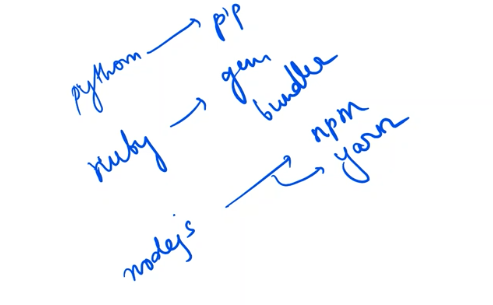 python → pip
ruby → gem
bundler
nodejs → npm
yarn